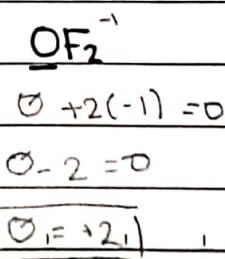 OF₂⁻¹
O +2(-1) =0
O - 2 =0
O = +2